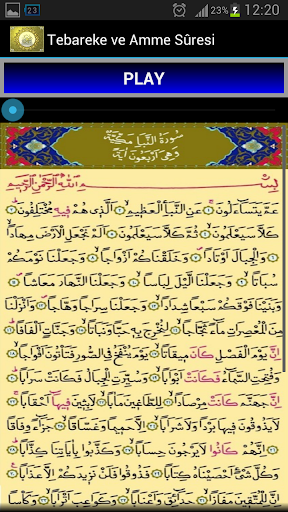 23 23% 12:20
Tebareke ve Amme Sûresi
PLAY
سُورَةُ النَّبَإِ مَكِّيَّةٌ
وَهِيَ اَرْبَعُونَ اٰيَةً
بِسْمِ اللّٰهِ الرَّحْمٰنِ الرَّحِيمِ
عَمَّ يَتَسَاءَلُونَ ﴿١﴾ عَنِ النَّبَاِ الْعَظِيمِ ﴿٢﴾ اَلَّذِى هُمْ فِيهِ مُخْتَلِفُونَ ﴿٣﴾
كَلَّا سَيَعْلَمُونَ ﴿٤﴾ ثُمَّ كَلَّا سَيَعْلَمُونَ ﴿٥﴾ اَلَمْ نَجْعَلِ الْاَرْضَ مِهَادًا ﴿٦﴾
وَالْجِبَالَ اَوْتَادًا ﴿٧﴾ وَخَلَقْنَاكُمْ اَزْوَاجًا ﴿٨﴾ وَجَعَلْنَا نَوْمَكُمْ
سُبَاتًا ﴿٩﴾ وَجَعَلْنَا الَّيْلَ لِبَاسًا ﴿١٠﴾ وَجَعَلْنَا النَّهَارَ مَعَاشًا ﴿١١﴾
وَبَنَيْنَا فَوْقَكُمْ سَبْعًا شِدَادًا ﴿١٢﴾ وَجَعَلْنَا سِرَاجًا وَهَّاجًا ﴿١٣﴾ وَاَنْزَلْنَا
مِنَ الْمُعْصِرَاتِ مَاءً ثَجَّاجًا ﴿١٤﴾ لِنُخْرِجَ بِهِ حَبًّا وَنَبَاتًا ﴿١٥﴾ وَجَنَّاتٍ اَلْفَافًا ﴿١٦﴾
اِنَّ يَوْمَ الْفَصْلِ كَانَ مِيقَاتًا ﴿١٧﴾ يَوْمَ يُنْفَخُ فِى الصُّورِ فَتَاْتُونَ اَفْوَاجًا ﴿١٨﴾
وَفُتِحَتِ السَّمَاءُ فَكَانَتْ اَبْوَابًا ﴿١٩﴾ وَسُيِّرَتِ الْجِبَالُ فَكَانَتْ سَرَابًا ﴿٢٠﴾
اِنَّ جَهَنَّمَ كَانَتْ مِرْصَادًا ﴿٢١﴾ لِلطَّاغِينَ مَاٰبًا ﴿٢٢﴾ لَابِثِينَ فِيهَا اَحْقَابًا ﴿٢٣﴾
لَا يَذُوقُونَ فِيهَا بَرْدًا وَلَا شَرَابًا ﴿٢٤﴾ اِلَّا حَمِيمًا وَغَسَّاقًا ﴿٢٥﴾ جَزَاءً وِفَاقًا ﴿٢٦﴾
اِنَّهُمْ كَانُوا لَا يَرْجُونَ حِسَابًا ﴿٢٧﴾ وَكَذَّبُوا بِاٰيَاتِنَا كِذَّابًا ﴿٢٨﴾
وَكُلَّ شَىْءٍ اَحْصَيْنَاهُ كِتَابًا ﴿٢٩﴾ فَذُوقُوا فَلَنْ نَزِيدَكُمْ اِلَّا عَذَابًا ﴿٣٠﴾
اِنَّ لِلْمُتَّقِينَ مَفَازًا ﴿٣١﴾ حَدَائِقَ وَاَعْنَابًا ﴿٣٢﴾ وَكَوَاعِبَ اَتْرَابًا ﴿٣٣﴾